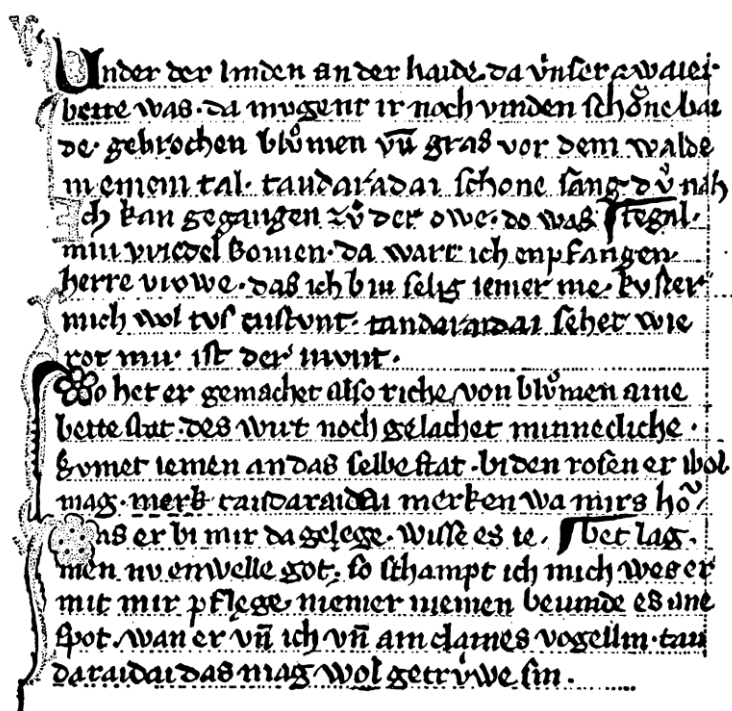 Under der linden an der haide. da ůnser zwaier
bette was. da mugent ir noch vinden schône bai
de. gebrochen blůmen vñ gras vor dem walde
in einem tal. tandaradai schone sang dů nah
Ich kan gegangen zů der owe. do was ¶ tegal.
min vriedel komen. da wart ich enpfangen
herre vrowe. das ich bin selig iemer me. kuster
mich wol tusentstunt. tandaraidai sehet wie
rot mir ist der munt.
Do het er gemachet also riche von blůmen aine
bettestat. des wirt noch gelachet minnecliche.
kumet iemen an das selbe stat. bi den rosen er wol
mag. merk tandaraidai merken wa mirs hǒ
Das er bi mir da gelege. wisse es ie. ¶ bet lag.
men nv enwelle got. so schampt ich mich wes er
mit mir pflege. niemer niemen bevinde es ane
spot. wan er vñ ich vñ ain claines vogellin. tan
daraidai das mag wol getrůwe sin.